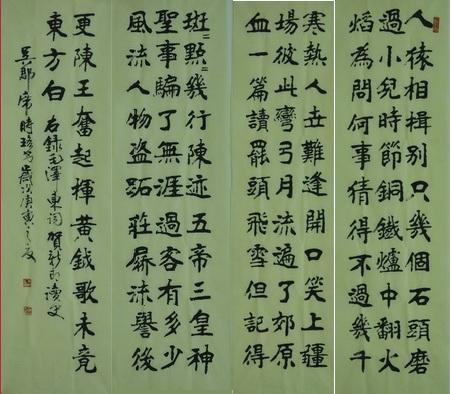 人猿相揖別只幾個石頭磨
過小兒時節銅鐵爐中翻火
焰為問何事猜得不過幾千
寒熱人世難逢開口笑上疆
場彼此彎弓月流遍了郊原
血一篇讀罷頭飛雪但記得
斑〻點〻幾行陳迹五帝三皇神
聖事騙了無涯過客有多少
風流人物盜跖莊屩流譽後
更陳王奮起揮黃鉞歌未竟
東方白
右錄毛澤東詞賀新郎讀史
吳郡席時珞書歲次庚寅之夏